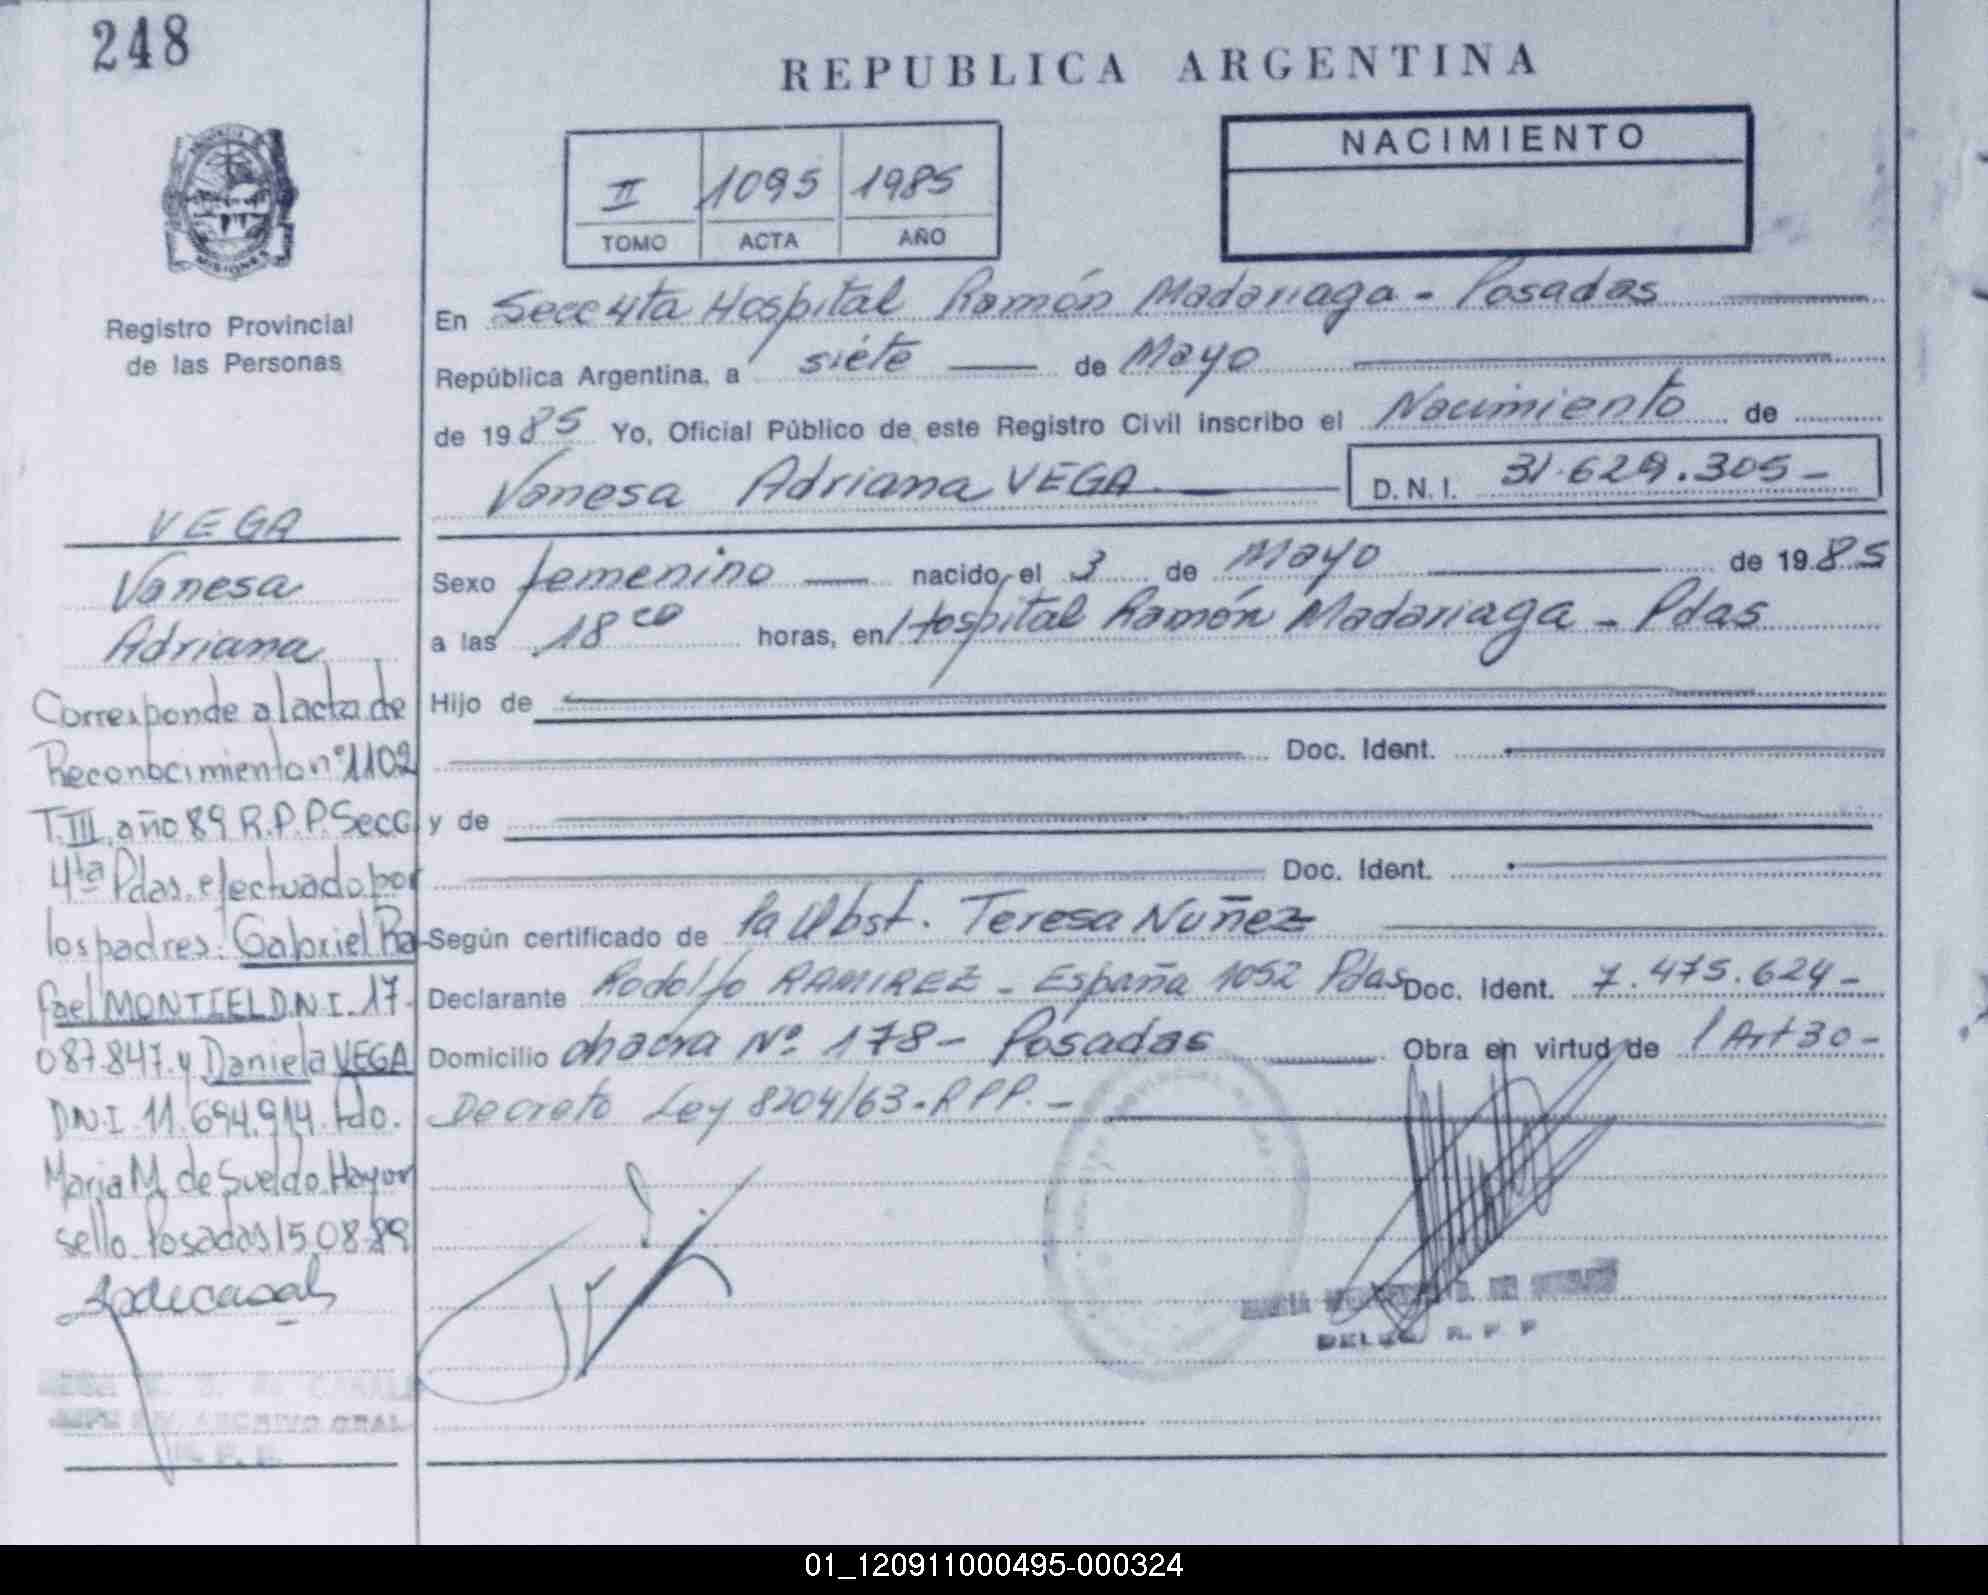 248
REPUBLICA ARGENTINA
NACIMIENTO
II 1095 1985
TOMO ACTA AÑO
MISIONES
Registro Provincial
de las Personas
En Secc 4ta Hospital Ramón Madariaga - Posadas
República Argentina, a siete de Mayo
de 1985 Yo, Oficial Público de este Registro Civil inscribo el Nacimiento de
Vanesa Adriana VEGA D.N.I. 31.629.305-
Sexo femenino nacido el 3 de Mayo de 1985
a las 18 co horas, en Hospital Ramón Madariaga - Pdas
Hijo de
Doc. Ident.
y de
Doc. Ident.
Según certificado de la Obst. Teresa Nuñez
Declarante Rodolfo RAMIREZ - España 1052 Pdas Doc. Ident. 7.475.624-
Domicilio chacra Nº 178 - Posadas Obra en virtud de l Art 30-
Decreto Ley 8204/63-RPP.-
DELEG. R. P. P
VEGA
Vanesa
Adriana
Corresponde al acta de
Reconocimiento nº 1102
T. III año 89 R.P.P. Secc
4ta Pdas. efectuado por
los padres: Gabriel Ra-
fael MONTIEL D.N.I. 17.
087.847. y Daniela VEGA
D.N.I. 11.694.914. Fdo.
Maria M. de Sueldo. Hay un
sello. Posadas 15.08.89
ARCHIVO GRAL.
R. P. P.
01_120911000495-000324